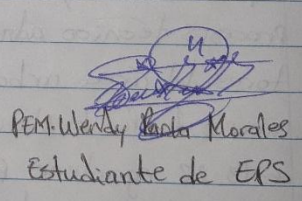 PEM. Wendy Paola Morales
Estudiante de EPS